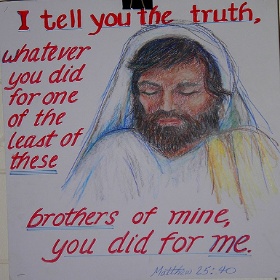 I tell you the truth,
whatever
you did
for one
of the
least of
these
brothers of mine,
you did for me.
Matthew 25:40